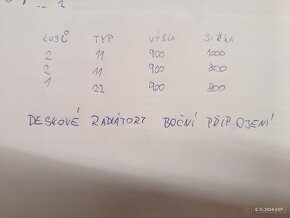 KUSŮ TYP VÝŠKA ŠÍŘKA
2 11 900 1000
2 11 900 800
1 22 900 800
DESKOVÉ RADIÁTORY BOČNÍ PŘIPOJENÍ